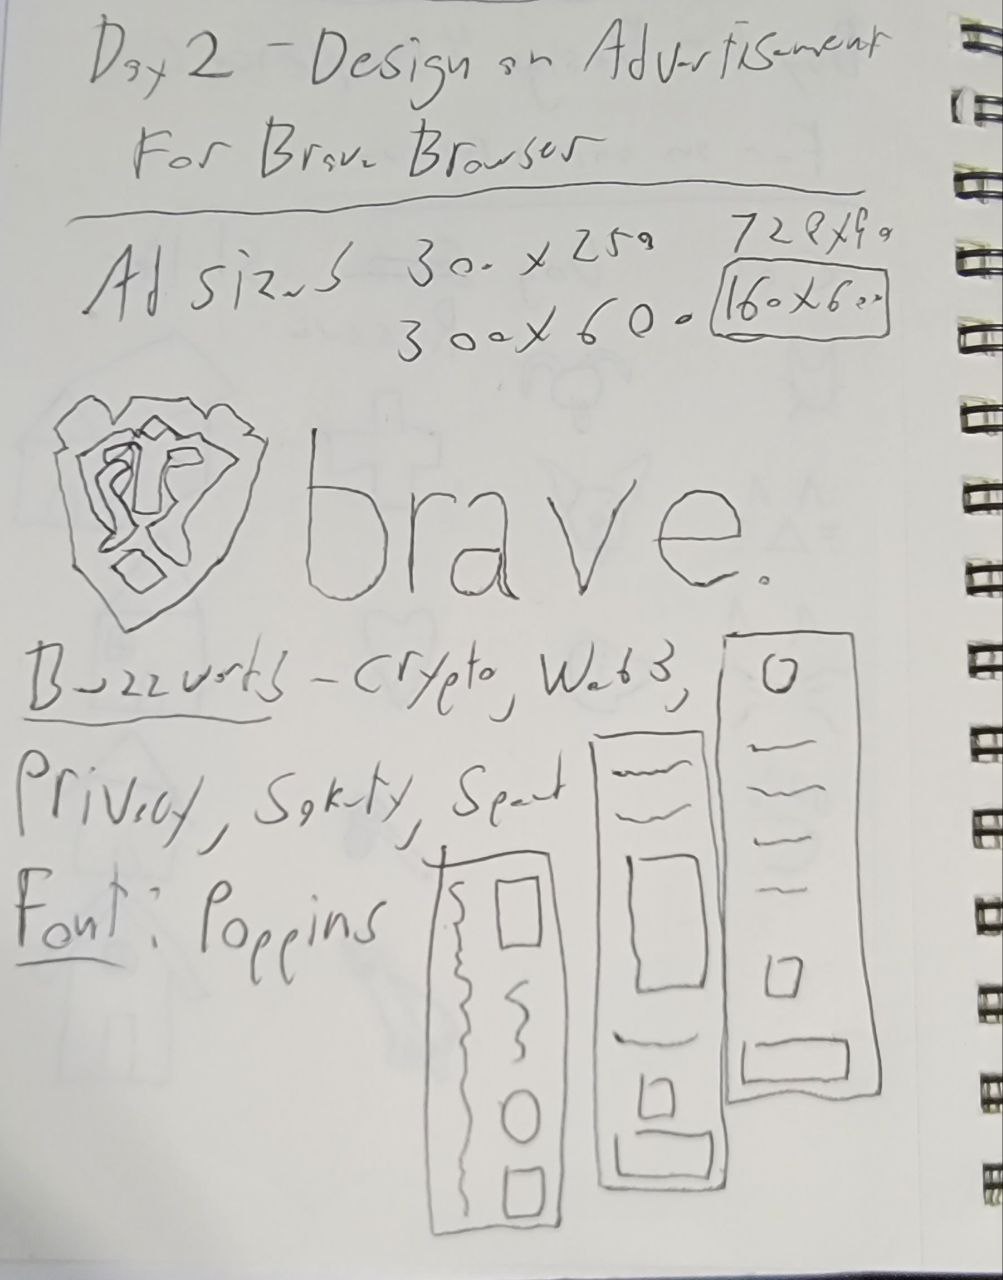 Day 2 - Design an Advertisement
For Brave Browser
Ad sizes 300 x 250 728x90
300x600 160x600
brave.
Buzzwords - Crypto, Web3,
Privacy, Safety, Speed
Font: Poppins